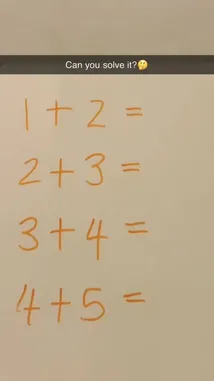 Can you solve it?🤔
1 + 2 =
2 + 3 =
3 + 4 =
4 + 5 =